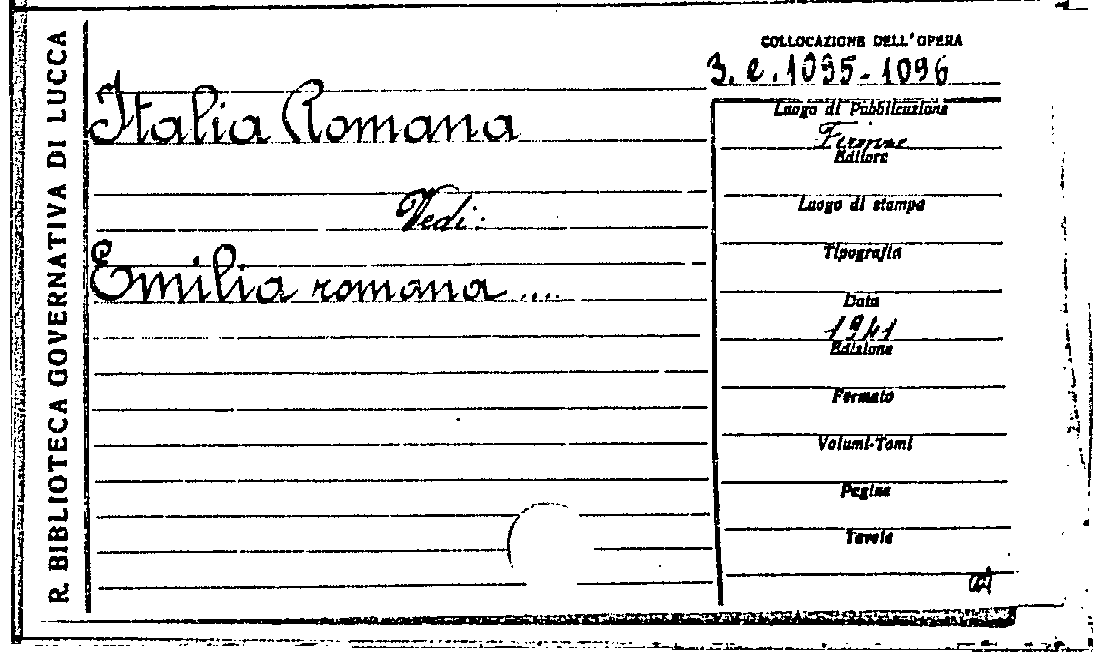 R. BIBLIOTECA GOVERNATIVA DI LUCCA
Italia Romana
Vedi:
Emilia romana ....
COLLOCAZIONE DELL'OPERA
3. e. 1095-1096
Luogo di Pubblicazione
Firenze
Editore
Luogo di stampa
Tipografia
Data
1941
Edizione
Formato
Volumi-Tomi
Pagine
Tavole